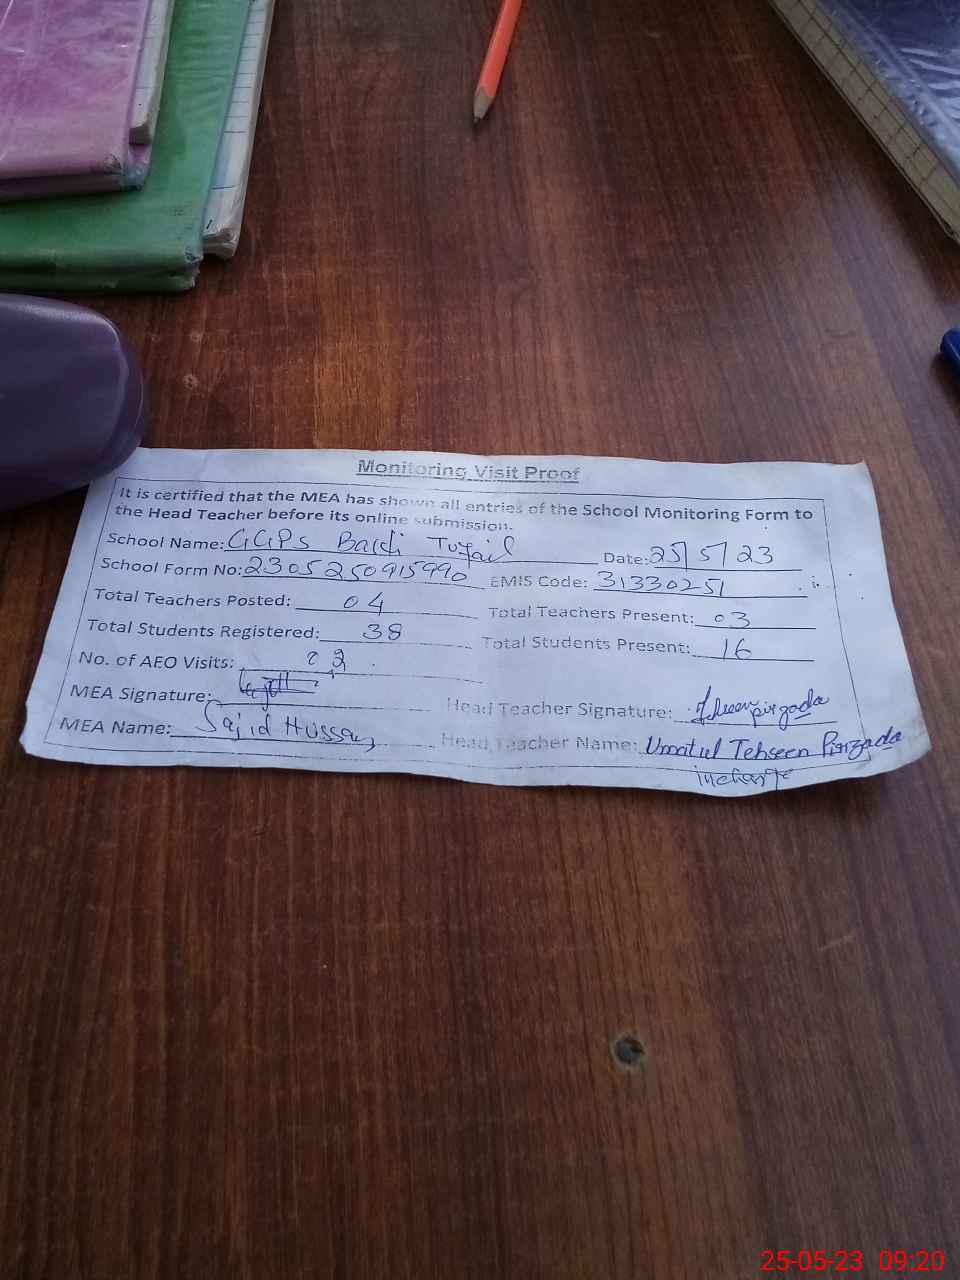 Monitoring Visit Proof
It is certified that the MEA has shown all entries of the School Monitoring Form to
the Head Teacher before its online submission.
School Name: GGPS Basti Tufail Date: 25/5/23
School Form No: 2305250915990 EMIS Code: 31330251
Total Teachers Posted: 04 Total Teachers Present: 03
Total Students Registered: 38 Total Students Present: 16
No. of AEO Visits: 02
MEA Signature: Head Teacher Signature: Tehseen pirzada
MEA Name: Sajid Hussain Head Teacher Name: Umatul Tehseen Pirzada
incharge
25-05-23 09:20